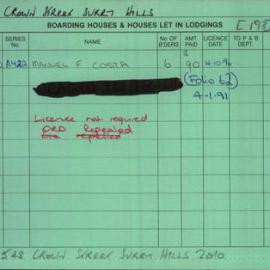 CROWN STREET SURRY HILLS
BOARDING HOUSES & HOUSES LET IN LODGINGS
SERIES No NAME No OF B'DERS AMT PAID LICENCE DATE TO P & B DEPT.
MANUEL F COSTA 6 90 4.10.90
(Folio 62)
4-1-91
Licence not required
ORD Repealed
CROWN STREET SURRY HILLS 2010